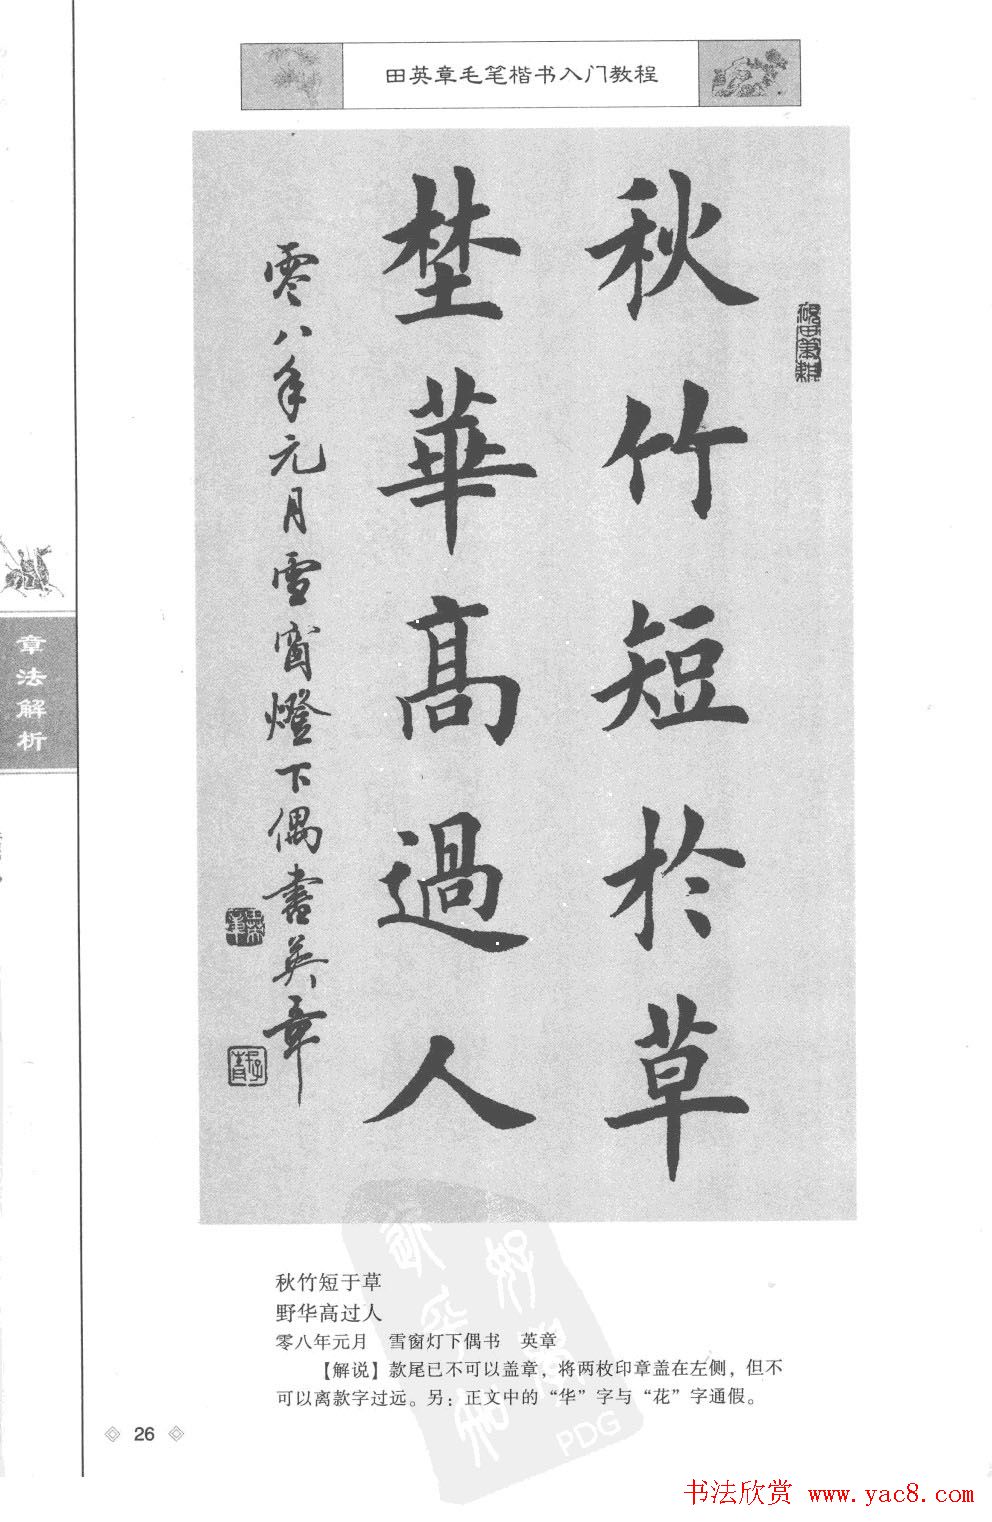 田英章毛笔楷书入门教程
秋竹短於草
埜華高過人
零八年元月雪窗燈下偶書英章
章法解析
秋竹短于草
野华高过人
零八年元月 雪窗灯下偶书 英章
【解说】款尾已不可以盖章，将两枚印章盖在左侧，但不
可以离款字过远。另：正文中的“华”字与“花”字通假。
26
PDG
书法欣赏 www.yac8.com